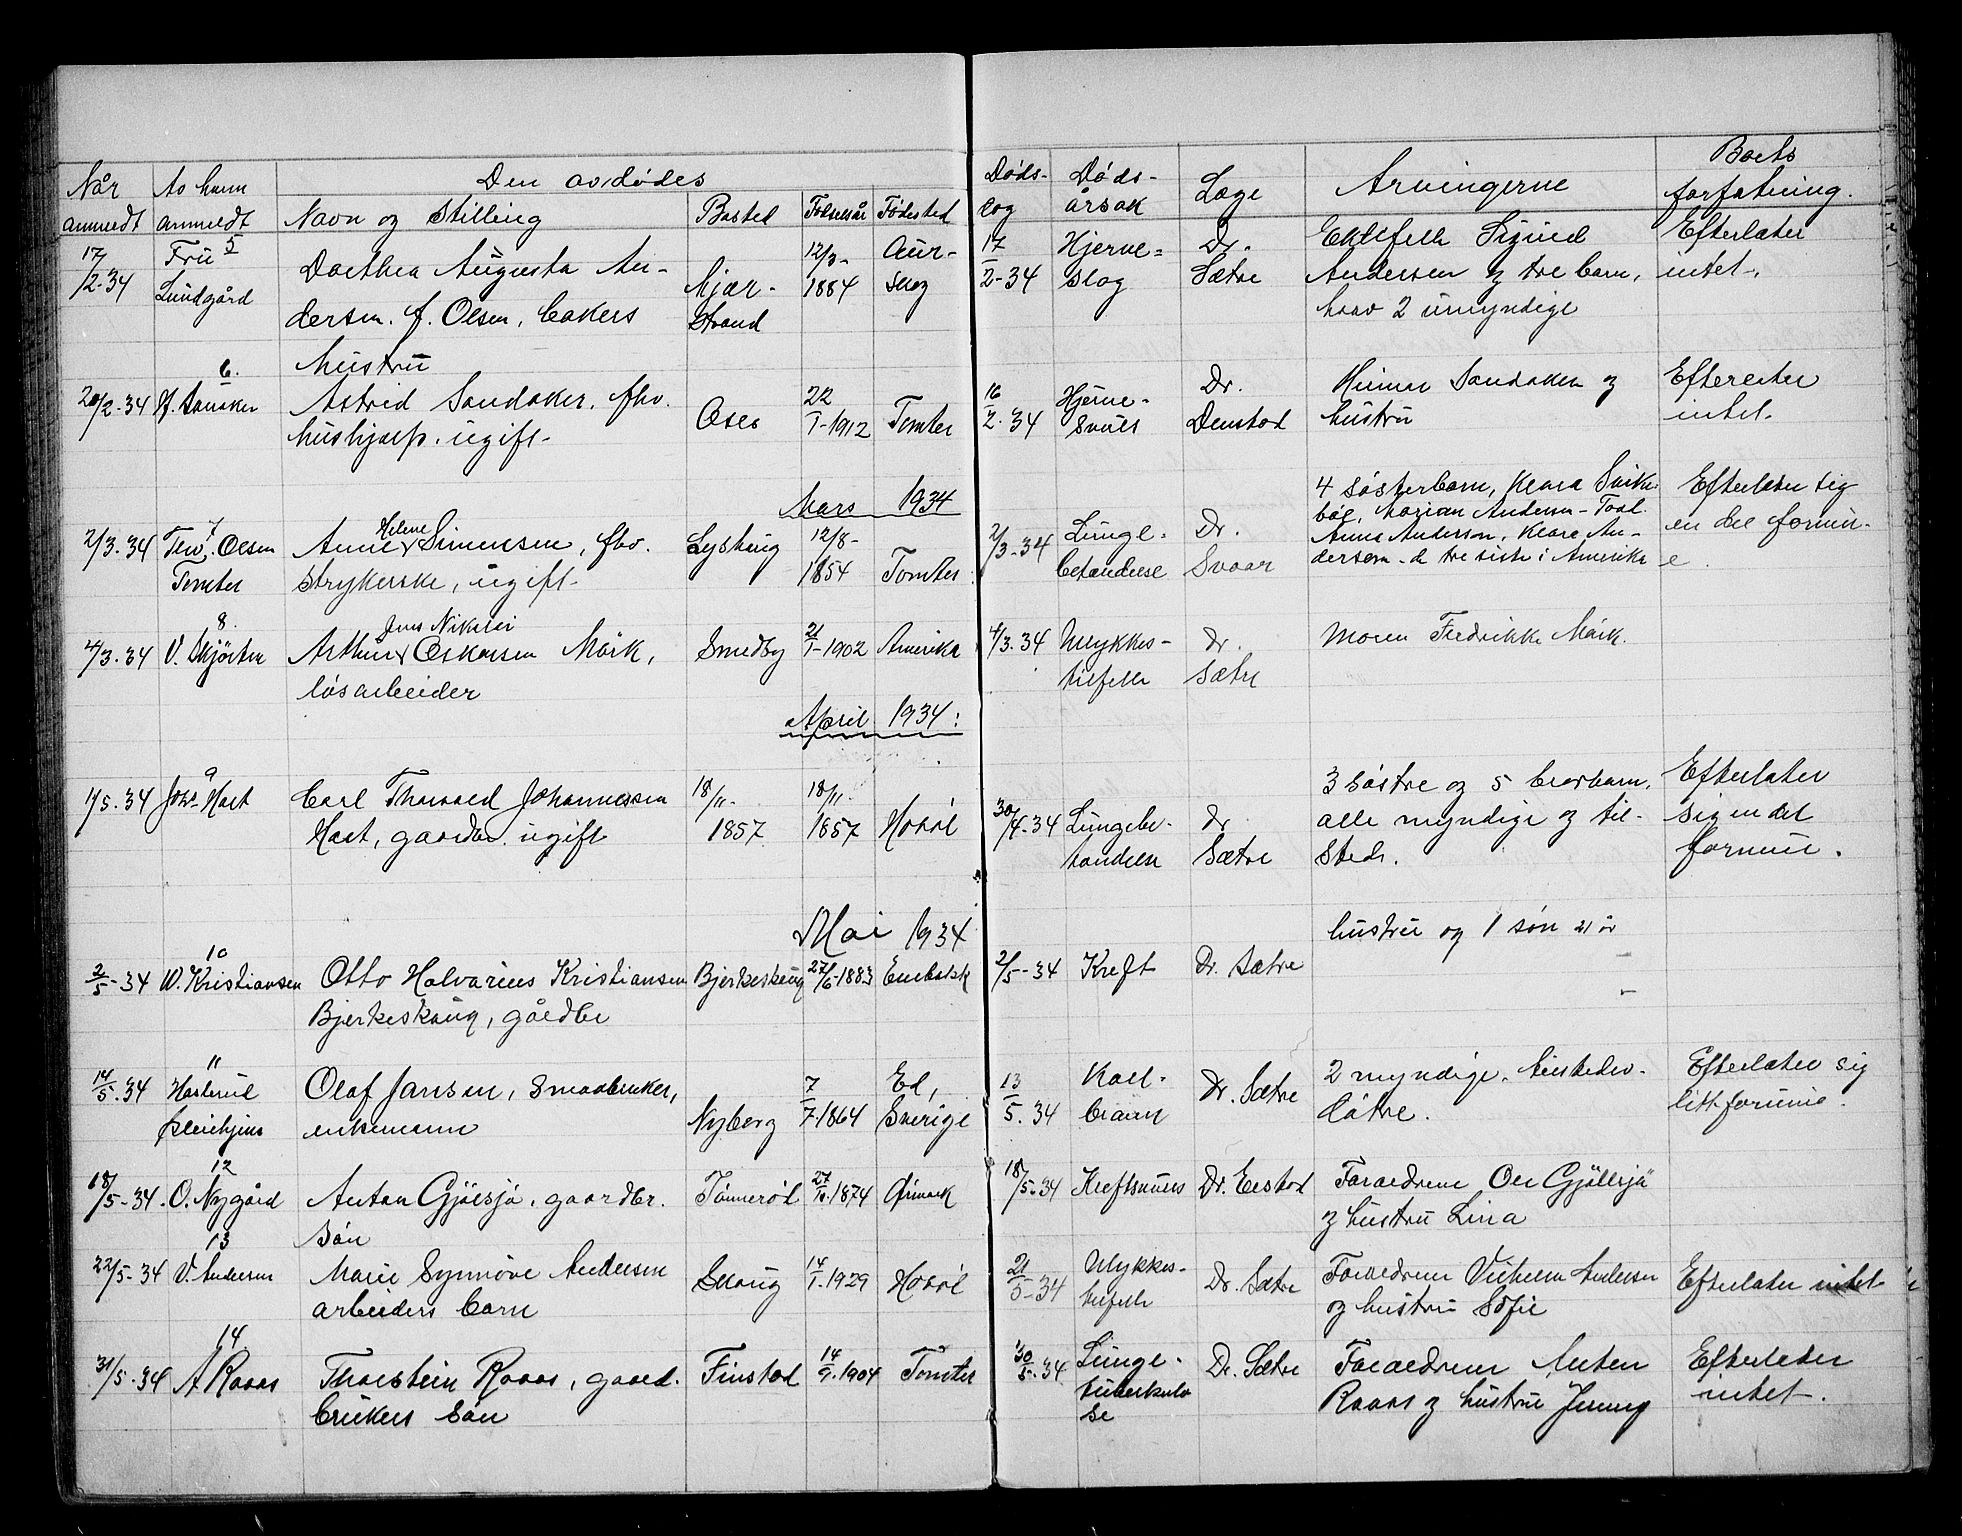 Når anmeldt | Av hvem anmeldt | Den avdødes | Døds-dag | Døds-årsak | Læge | Arvingerne | Boets forfatning.
Navn og Stilling | Bosted | Fødselsår | Fødested
5
17/2-34 | Fru Lundgård | Dorthea Augusta An- | Mjær- | 12/3- | Aur- | 17/2-34 | Hjerne- | Dr. | Ektefelle Sigurd | Efterlater
dersen. f. Olsen, bakers | strand | 1884 | skog | slag | Sætre | Andersen og tre barn, | intet.
hustru | hvorav 2 umyndige
6.
20/2-34 | Astrid Sandaker, fhv. | Oslo | 22/1-1912 | Tomter | 16/2-34 | Hjerne- | Dr. | Sandaker og | Efterlater
hushjælp. ugift. | svuls | hustru | intet.
Mars 1934
7
2/3.34 | Olsen | Anne Helene Simensen, fhv. | 12/8- | 2/3-34 | Lunge- | Dr. | 4 søsterbarn, Klara | Efterlater sig
Tomter | strykerske, ugift. | 1854 | Tomter | betendelse | Svaar | Marian Andersen | en del formu-
Anna Anderson, Klara An- | e.
derson. de tre siste i Amerika
8.
4/3.34 | Arthur Jens Nikolai Oskarsen Mørk, | Smedby | 21/1-1902 | Amerika | 4/3.34 | Ulykkes- | Dr. | Moren Fredrikke Mørk.
løsarbeider | tilfelle | Sætre
April 1934:
9
1/5.34 | Johs Hast | Carl Thorvald Johannessen | 18/11- | 18/11- | 30/4-34 | Lungebe- | Dr | 3 søstre og 5 brorbarn, | Efterlater
Hast, gaardbr. ugift | 1857 | 1857 | Hobøl | tendelse | Sætre | alle myndige og til- | sig en del
stede. | formue.
Mai 1934
10
2/5-34 | W. Kristiansen | Otto Halvarius Kristiansen | Bjerkeskaug | 27/6-1883 | Enebakk | 2/5-34 | Kreft | Dr. Sætre | hustru og 1 søn 21 år
Bjerkeskaug, gårdbr
11
14/5.34 | Olaf Jansen, smaabruker, | Nyberg | 7/7-1864 | Ed, | 13/5.34 | Kold- | Dr. Sætre | 2 myndige. | Efterlater sig
pleiehjem | enkemann | Sverige | brann | døtre. | litt formue.
12
18/5-34. | O. Nygård | Anton Gjølsjø, gaardbr. | Tønnerød | 1874 | Ørmark | 18/5.34 | Kreftsvuls | Foraldrene Ole Gjølsjø
søn | og hustru Lina
13
22/5-34 | V. Andersen | Marie Synnøve Andersen | Skaug | 14/1.1929 | Hobøl | 21/5-34 | Ulykkes- | Dr. Sætre | Foraldrene Vilhelm Andersen | Efterlater intet
arbeiders barn | tilfelle | og hustru Sofie
14
31/5.34 | A Raaas | Thorstein Raaas, gaard- | Finstad | 14/9.1904 | Tomter | 30/5.34 | Lunge- | Dr. Sætre | Foraldrene Anton | Efterlater
brukers søn | tuberkulo | Raaas og hustru Jenny | intet.
se